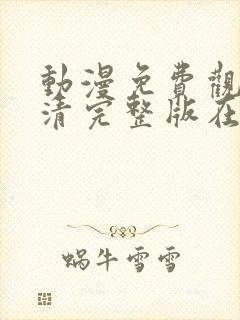 動漫免費觀
清完整版在
蝸牛雪雪